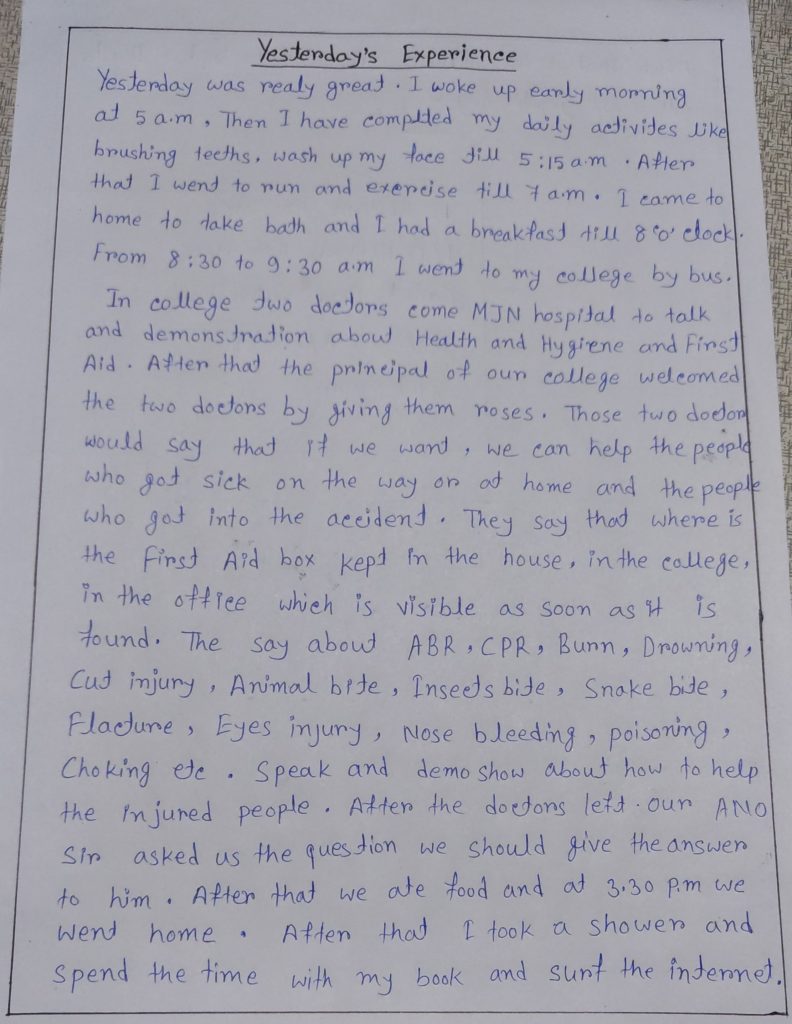 Yesterday's Experience
Yesterday was realy great. I woke up early morning
at 5 a.m, Then I have complted my daily activites like
brushing teeths, wash up my face till 5:15 a.m. After
that I went to run and exercise till 7 a.m. I came to
home to take bath and I had a breakfast till 8 'o' clock.
From 8:30 to 9:30 a.m I went to my college by bus.
In college two doctors come MJN hospital to talk
and demonstration about Health and Hygiene and First
Aid. After that the principal of our college welcomed
the two doctors by giving them roses. Those two doctor
would say that if we want, we can help the people
who got sick on the way or at home and the people
who got into the accident. They say that where is
the First Aid box kept in the house, in the college,
in the office which is visible as soon as it is
found. The say about ABR, CPR, Burn, Drowning,
Cut injury, Animal bite, Insects bite, Snake bite,
Flacture, Eyes injury, Nose bleeding, poisoning,
Choking etc. Speak and demo show about how to help
the injured people. After the doctors left. our ANO
Sir asked us the question we should give the answer
to him. After that we ate food and at 3.30 P.m we
went home. After that I took a shower and
Spend the time with my book and surf the internet.